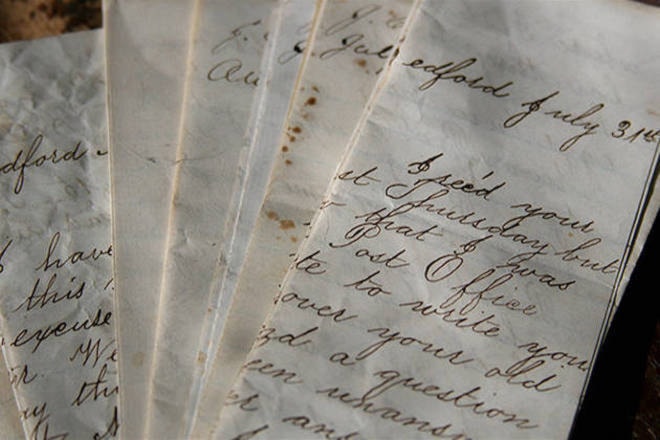 dford
I have
this
excuse
r. We
ay thi
Au
Jul
edford July 31st
I rec'd your
st Thursday but
that I was
Post Office
te to write you
over your old
nd a question
een unansw
er and